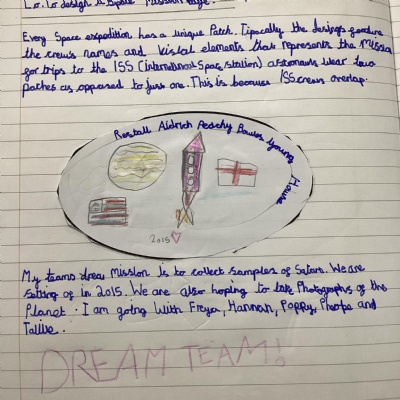 L.O. To design a Space Mission Page.
Every Space expedition has a unique Patch. Tipocally the desings feature
the crew's names and visual elements that represents the Missio
for trips to the ISS (international Space Station) astronauts wear two
Patches as opposed to just one. This is because ISS crews overlap.
Restall Aldrich Peachy Power Young Howe
2015
My teams dream Mission is to collect samples of Saturn. We are
setting of in 2015. We are also hoping to take Photographs of the
Planet. I am going with Freya, Hannah, Poppy, Phoebe and
DREAM TEAM!